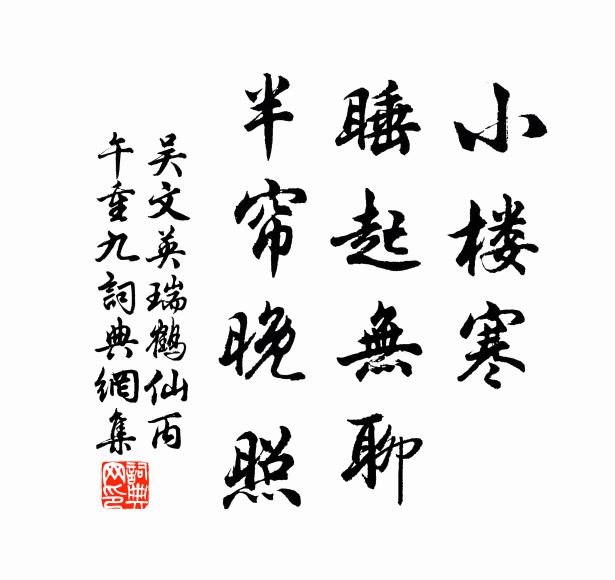 小楼寒
睡起無聊
半帘晚照
吴文英瑞鶴仙丙
午重九詞典網集
詞典
网印